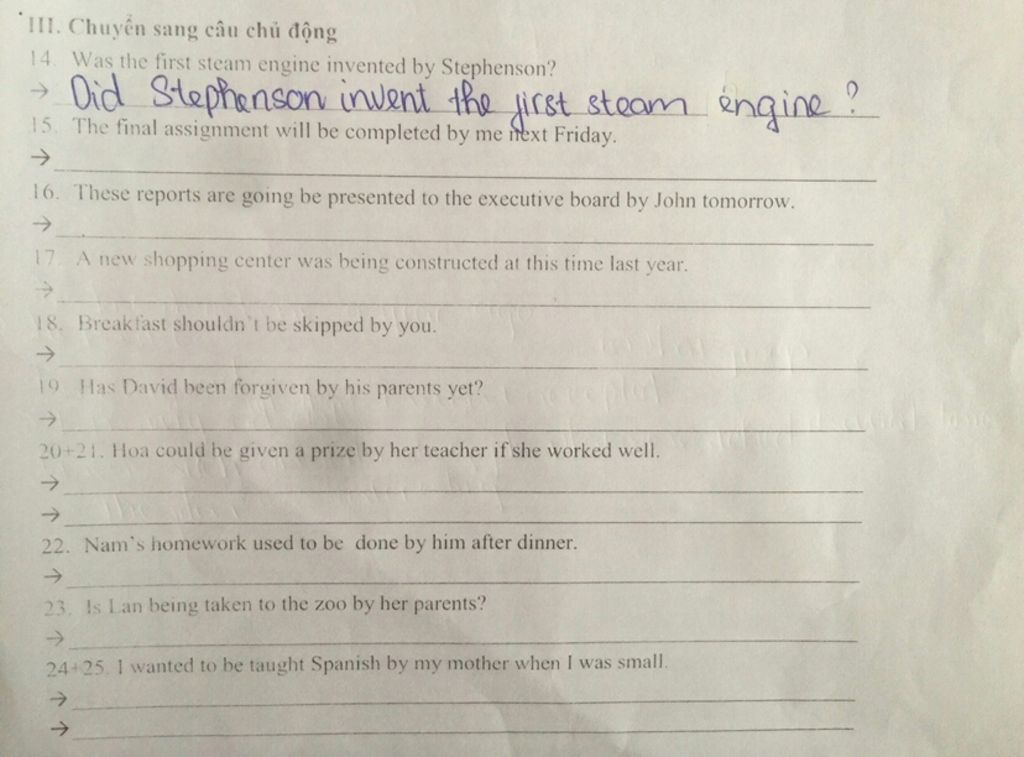 III. Chuyển sang câu chủ động
14. Was the first steam engine invented by Stephenson?
→ Did Stephenson invent the first steam engine?
15. The final assignment will be completed by me next Friday.
→
16. These reports are going be presented to the executive board by John tomorrow.
→
17. A new shopping center was being constructed at this time last year.
→
18. Breakfast shouldn't be skipped by you.
→
19. Has David been forgiven by his parents yet?
→
20+21. Hoa could be given a prize by her teacher if she worked well.
→
→
22. Nam's homework used to be done by him after dinner.
→
23. Is Lan being taken to the zoo by her parents?
→
24+25. I wanted to be taught Spanish by my mother when I was small.
→
→